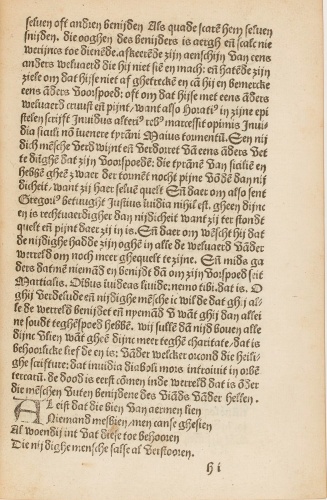 seluen oft andren beniijden Als quade scaret hem seluen
snijden. die ooghen des benijders is aergh eñ scalc nie
werijnts toe dienēde, afkeerēde zijn aenschijn van eens
anders weluaerd die hij niet siē en mach: en hatēde zijn
ziele om dat hijse niet af ghetrecke en cā hij en bemercke
eens āders voorspoed: oft om dat hijse met eens āders
weluaerd cruust en pijnt, want also Horati⁹ in zijne epi
stelen scrijft Inuidus alteri⁹ reb⁹ marressit opimis Inui
dia siculi nō iuenere tyrāni Maius tormentū. Een nij
dich mēsche verdwijnt eñ verdorret vā eens āders vet
te dīghē dat zijn voorspoedē: die tyrānē van sialiē en
hebbē gheē zwaer der tormēt nocht pijne vōdē dan nij
dicheit, want zij haer seluē quelt Eñ daer om also sent
Gregori⁹ betuught Iustius iuidia nihil est. gheen dijnc
en is rechtuaerdigher dan nijdicheit want zij ter stondt
quelt eñ pijnt daer zij in is. Eñ daer om wēscht hij dat
de nijdighe hadde zijn oghē in alle de weluaerd vāder
werreld om noch meer ghequelt te zijne. Eñ mids ga
ders datmē niemād en benijdt dā om zijn vorspoed seit
Martialis. Olbus iuideas liuide: nemo tibi. dat is. O
ghij verdelude eñ nijdighe mēsche ic wil de dat ghij al
le de werreld benijdet eñ nyemād v wāt ghij dan allei
ne soudt teghēspoed hebbē. wij sullē dā nijd bouen alle
dijnc vliē wāt gheē dijnc meer teghē charitate, dat is
behoorlicke liefde en is: vāder welcker orcond die heili-
ghe scrifture: dat inuidia diaboli mors introiuit in orbē
terrarū. de dood is eerst cōmen inde werreld dat is ōder
die mēschen vuten benijdene des viāds vāder hellen.
Al eist dat die bien van aermen lien
Niemand mesbien, men canse ghesien
Al woendij int vat diese toe behooren
Die nijdighe mensche salse al verstooren.
h i